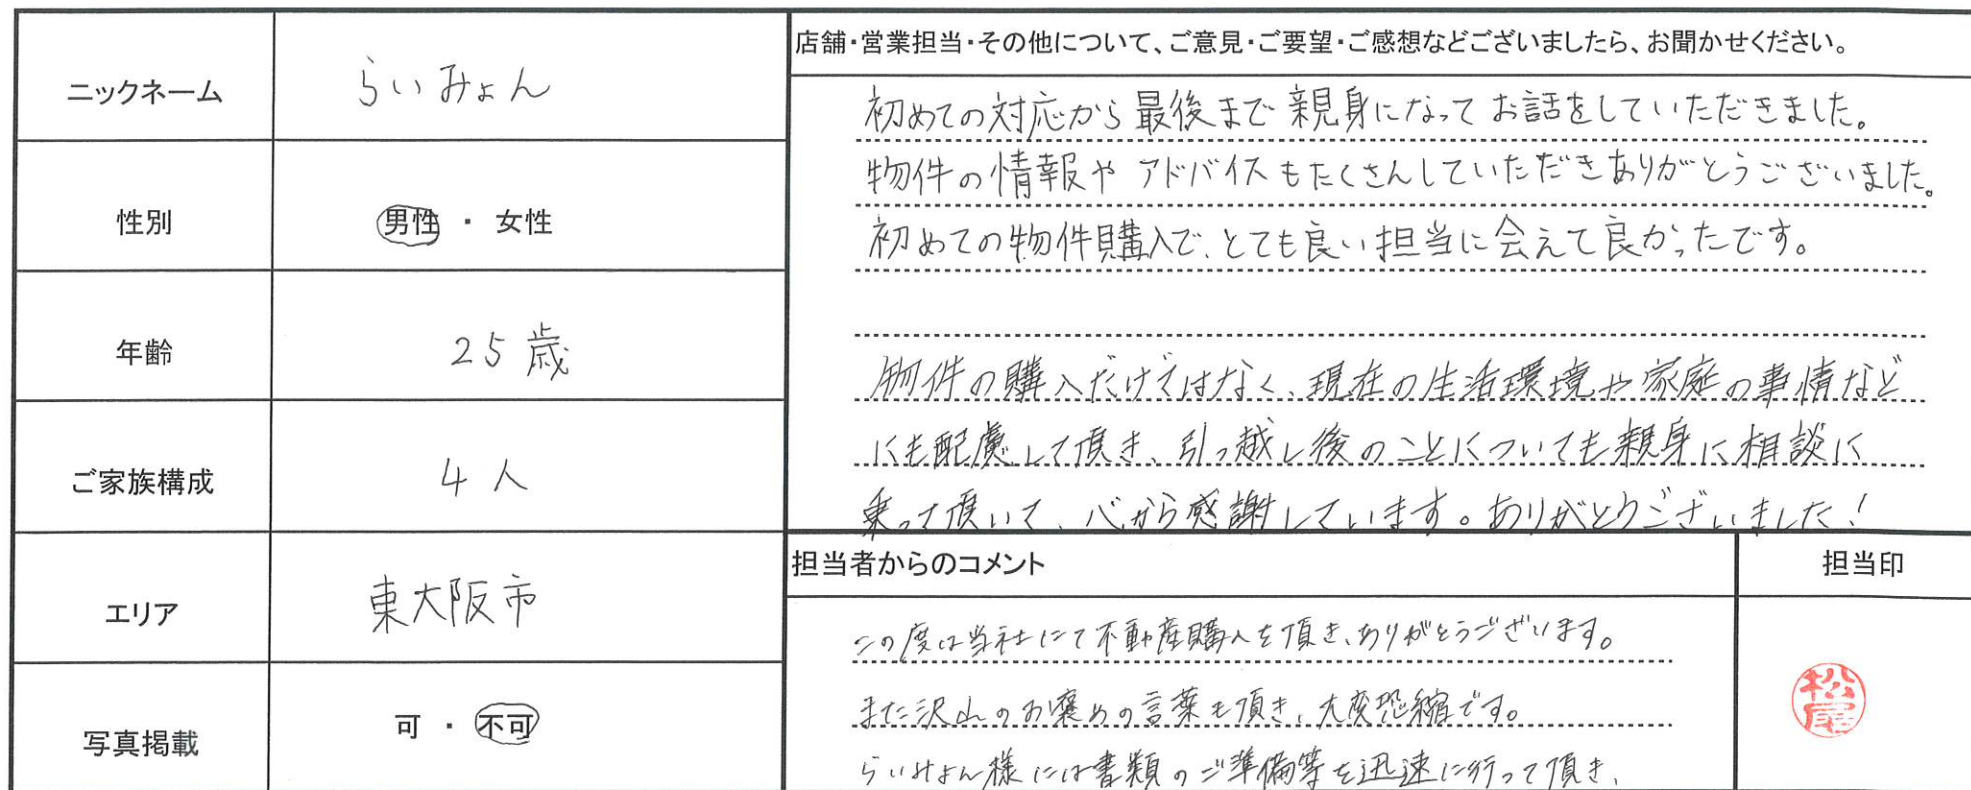 ニックネーム
らいみょん
性別
男性 ・ 女性
年齢
25歳
ご家族構成
4人
エリア
東大阪市
写真掲載
可 ・ 不可
店舗・営業担当・その他について、ご意見・ご要望・ご感想などございましたら、お聞かせください。
初めての対応から最後まで親身になってお話をしていただきました。
物件の情報やアドバイスもたくさんしていただきありがとうございました。
初めての物件購入で、とても良い担当に会えて良かったです。
物件の購入だけではなく、現在の生活環境や家庭の事情など
にも配慮して頂き、引っ越し後のことについても親身に相談に
乗って頂いて、心から感謝しています。ありがとうございました!
担当者からのコメント
担当印
この度は当社にて不動産購入を頂き、ありがとうございます。
また沢山のお褒めの言葉も頂き、大変恐縮です。
らいみょん様には書類のご準備等を迅速に行って頂き、
松尾